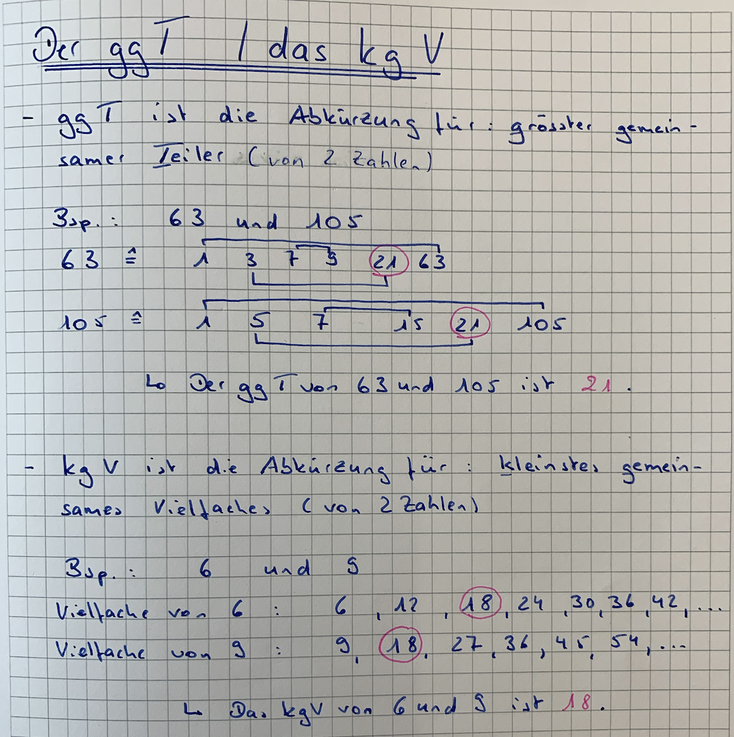 Der ggT / das kgV
- ggT ist die Abkürzung für: grösster gemein-
samer Teiler (von 2 Zahlen)
Bsp.: 63 und 105
63 ≙ 1 3 7 9 21 63
105 ≙ 1 5 7 15 21 105
↳ Der ggT von 63 und 105 ist 21.
- kgV ist die Abkürzung für: kleinstes gemein-
sames Vielfaches (von 2 Zahlen)
Bsp.: 6 und 9
Vielfache von 6 : 6, 12, 18, 24, 30, 36, 42, ...
Vielfache von 9 : 9, 18, 27, 36, 45, 54, ...
↳ Das kgV von 6 und 9 ist 18.